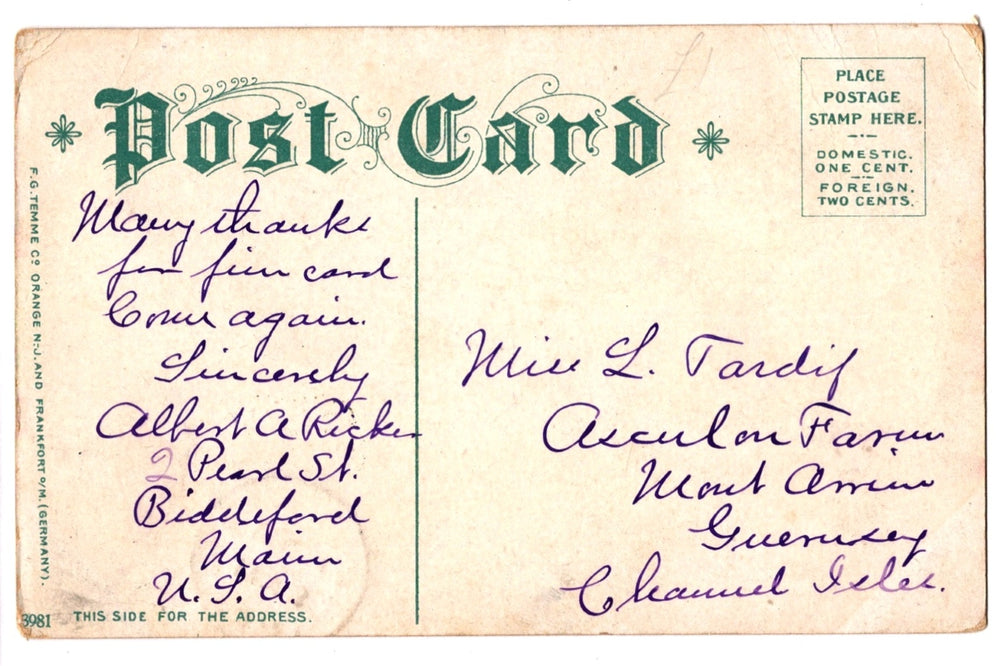 Post Card
PLACE
POSTAGE
STAMP HERE.
DOMESTIC.
ONE CENT.
FOREIGN.
TWO CENTS.
F. G. TEMME Cº ORANGE N.J. AND FRANKFORT O/M. (GERMANY).
Many thanks
for fine card
Come again.
Sincerely
Albert A Ricker
2 Pearl St.
Biddeford
Maine
U.S.A.
Miss L. Tardif
Farm
Mont
Guernsey
Channel Isles.
3981
THIS SIDE FOR THE ADDRESS.